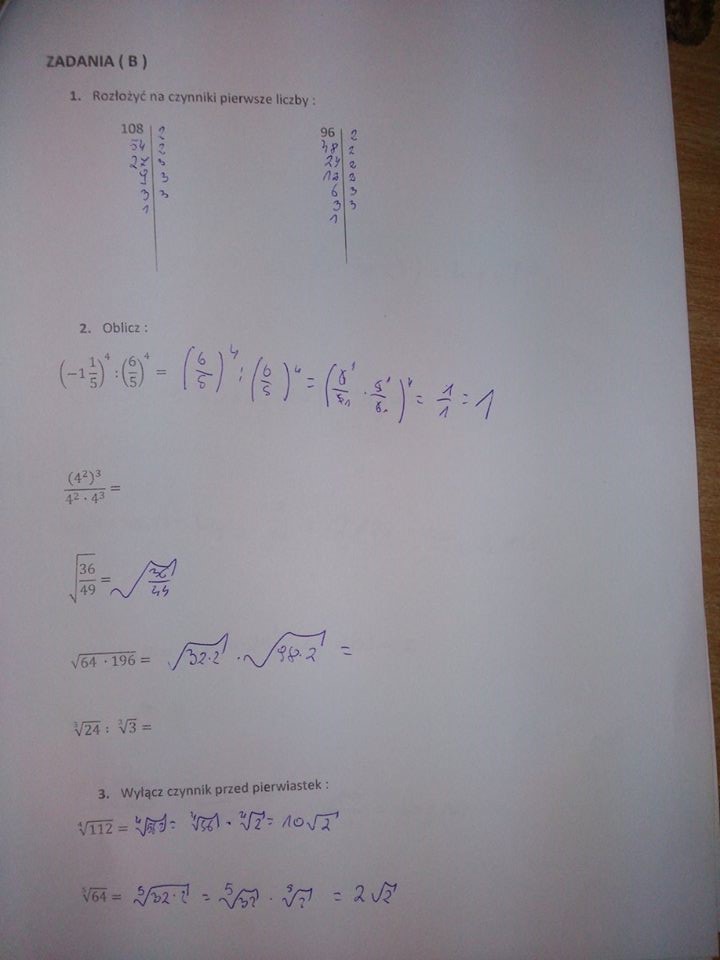 ZADANIA ( B )
1. Rozłożyć na czynniki pierwsze liczby :
108 | 2 96 | 2
54 | 2 48 | 2
27 | 3 24 | 2
9 | 3 12 | 2
3 | 3 6 | 3
1 3 | 3
1
2. Oblicz :
(-1 1/5)^4 : (6/5)^4 = (6/5)^4 : (6/5)^4 = (6^1/5_1 · 5^1/6_1)^4 = 1/1 = 1
(4²)³ / 4² · 4³ =
√(36/49) = √
√(64 · 196) = √(32·2) · √(98·2) =
∛24 : ∛3 =
3. Wyłącz czynnik przed pierwiastek :
⁴√112 = = ⁴√56 · ⁴√2 = 10√2
⁵√64 = ⁵√(32·2) = ⁵√32 · ⁵√2 = 2√2